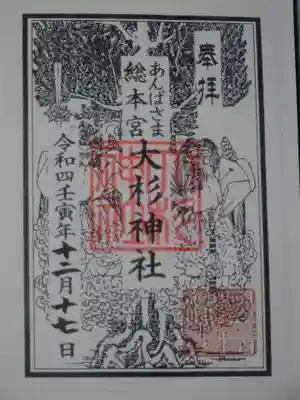 奉拝
あんばさま
総本宮
大杉神社
令和四壬寅年十二月十七日